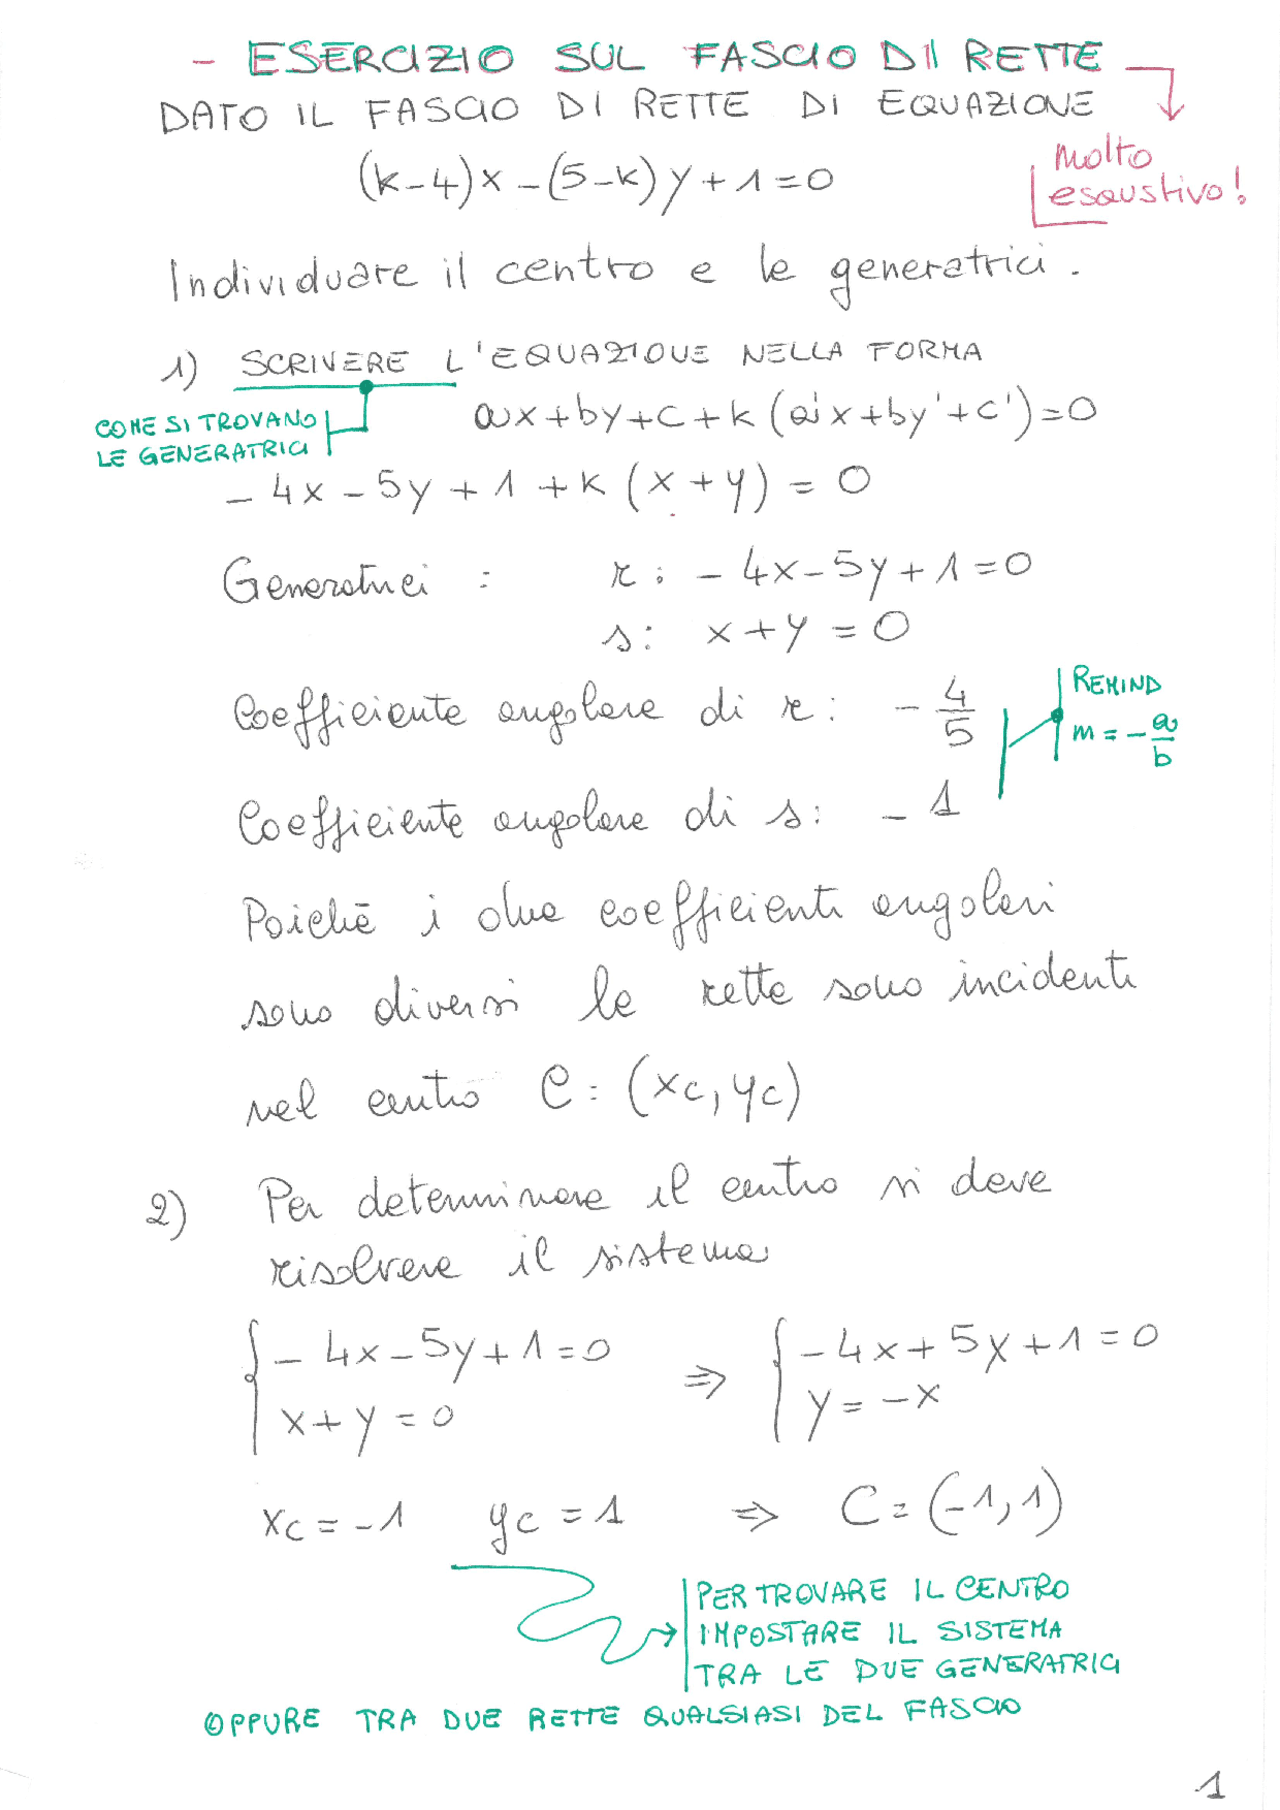 - ESERCIZIO SUL FASCIO DI RETTE
DATO IL FASCIO DI RETTE DI EQUAZIONE
(k-4)x-(5-k)y+1=0
Molto
esaustivo!
Individuare il centro e le generatrici.
1) SCRIVERE L'EQUAZIONE NELLA FORMA
ax+by+c+k(a'x+by'+c')=0
COME SI TROVANO
LE GENERATRICI
-4x-5y+1+k(x+y)=0
Generatrici : r: -4x-5y+1=0
s: x+y=0
Coefficiente angolare di r: -4/5
REMIND
m=-a/b
Coefficiente angolare di s: -1
Poichè i due coefficienti angolari
sono diversi le rette sono incidenti
nel centro C=(xc,yc)
2) Per determinare il centro si deve
risolvere il sistema
{-4x-5y+1=0 ⇒ {-4x+5x+1=0
x+y=0 y=-x
xc=-1 yc=1 ⇒ C=(-1,1)
PER TROVARE IL CENTRO
IMPOSTARE IL SISTEMA
TRA LE DUE GENERATRICI
OPPURE TRA DUE RETTE QUALSIASI DEL FASCIO
1